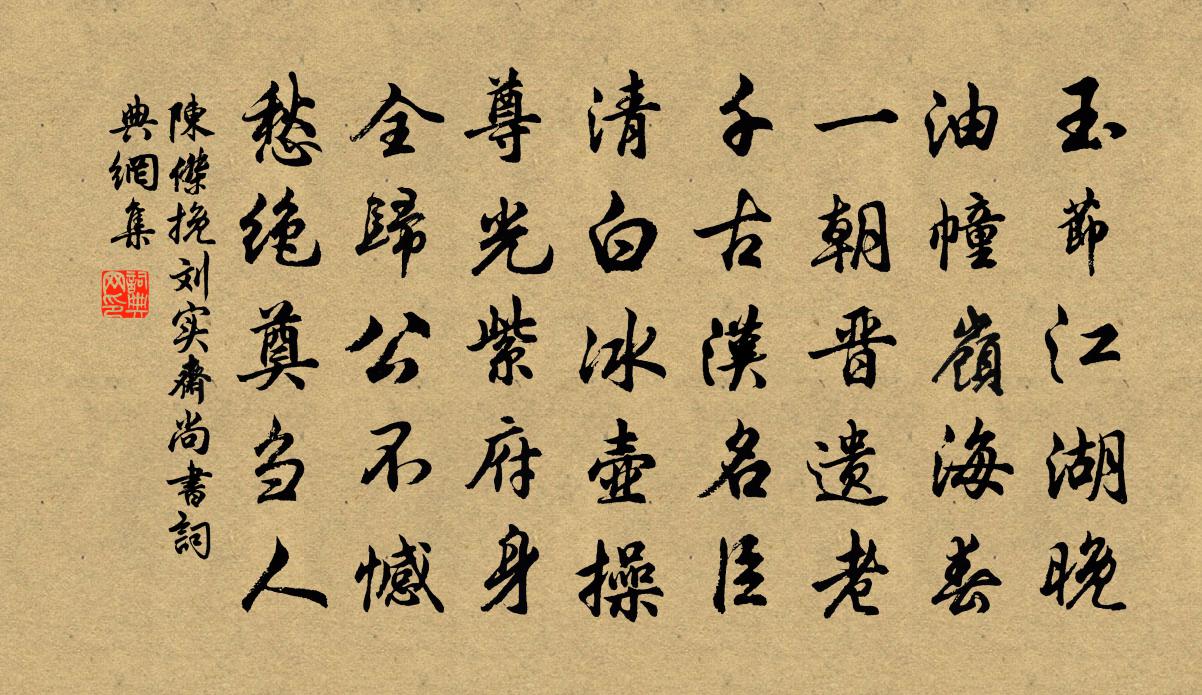 玉節江湖晚
油幢嶺海春
一朝晋遗老
千古漢名臣
清白冰壶操
尊光紫府身
全歸公不憾
愁绝奠刍人
陳傑挽刘实齋尚書詞
典網集
詞典网印